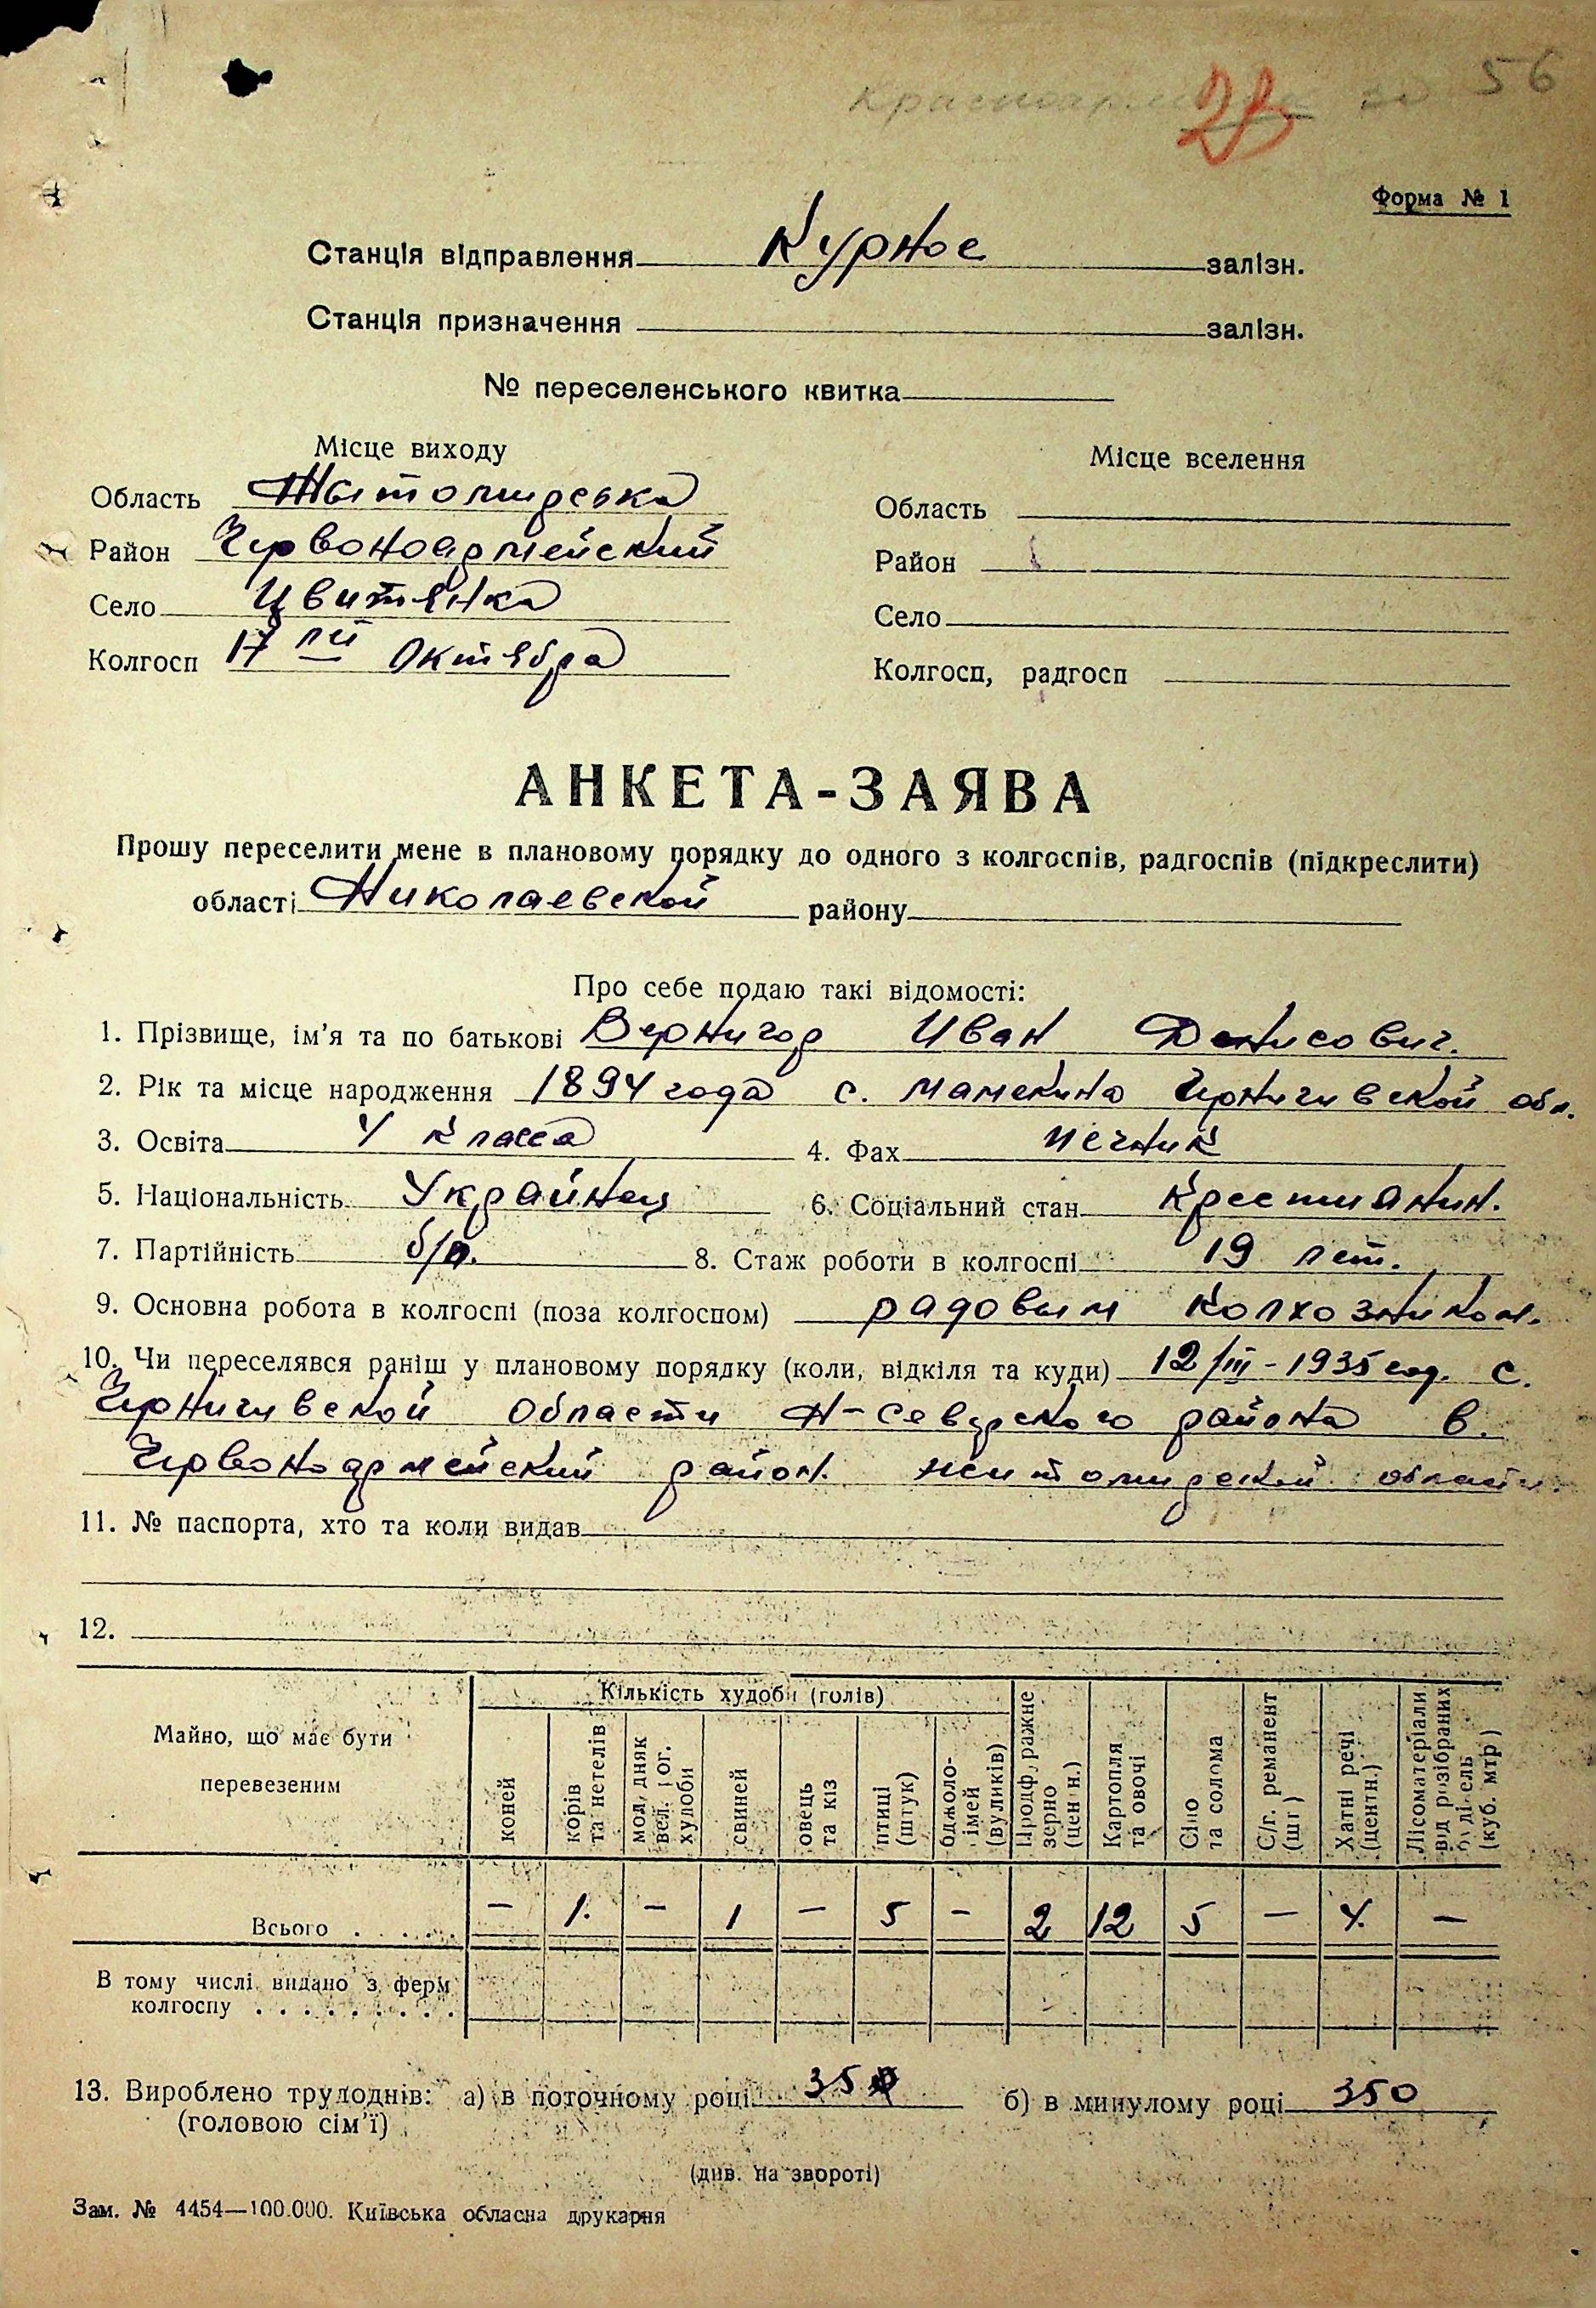 56
28
Форма № 1
Станція відправлення Курное залізн.
Станція призначення залізн.
№ переселенського квитка
Місце виходу
Місце вселення
Область Житомирська
Область
Район Червоноармейский
Район
Село Цвитянка
Село
Колгосп 17 ли Октября
Колгосп, радгосп
АНКЕТА-ЗАЯВА
Прошу переселити мене в плановому порядку до одного з колгоспів, радгоспів (підкреслити)
області Николаевской району
Про себе подаю такі відомості:
1. Прізвище, ім'я та по батькові Вернигор Иван Денисович.
2. Рік та місце народження 1894 года с. Мамекина Чернигивской обл.
3. Освіта 4 класса 4. Фах печник
5. Національність Украйнец 6. Соціальний стан Крестианин.
7. Партійність б/п. 8. Стаж роботи в колгоспі 19 лет.
9. Основна робота в колгоспі (поза колгоспом) радовым колхозником.
10. Чи переселявся раніш у плановому порядку (коли, відкіля та куди) 12/III-1935 год. с.
Чернигивской Области Н-Северского района в.
Червоноармейский район. житомирской области.
11. № паспорта, хто та коли видав
12.
Майно, що має бути перевезеним
Кількість худоби (голів)
коней
корів та нетелів
молодняк вел. рог. худоби
свиней
овець та кіз
птиці (штук)
бджоло-імей (вуликів)
Продфуражне зерно (центн.)
Картопля та овочі
Сіно та солома
С/г. реманент (шт)
Хатні речі (центн.)
Лісоматеріали від розібраних будівель (куб. мтр)
Всього . . . . . — 1. — 1 — 5 — 2 12 5 — 4. —
В тому числі видано з ферм
колгоспу . . . . . . . . .
13. Вироблено трудоднів: а) в поточному році 350 б) в минулому році 350
(головою сім'ї)
(див. на звороті)
Зам. № 4454—100.000. Київська обласна друкарня